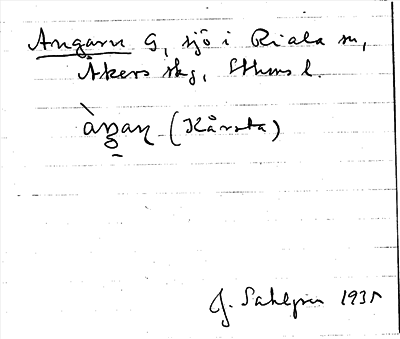 Angarn G, sjö i Riala sn,
Åkers skg, Sthms l.
àŋaɳ (Kårsta)
J. Sahlgren 1935